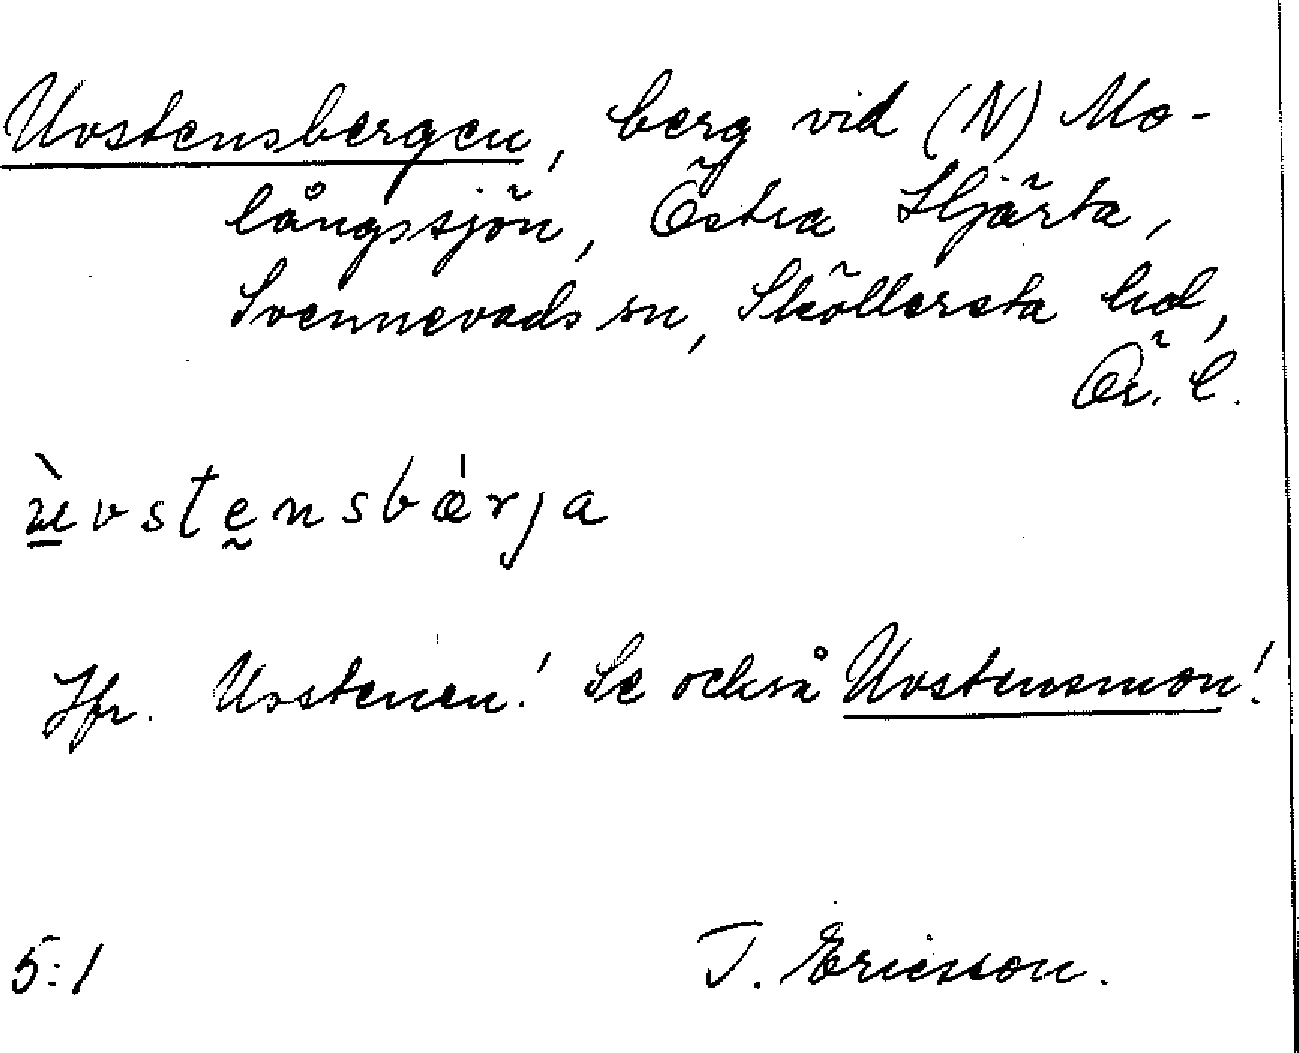 Uvstensbergen, berg vid (N) Mo-
långssjön, Östra Hjärta,
Svennevads sn, Sköllersta hd,
Ör. l.
ùvstensbærja
Jfr. Uvstenen! Se också Uvstensmon!
5:1 T. Ericsson.